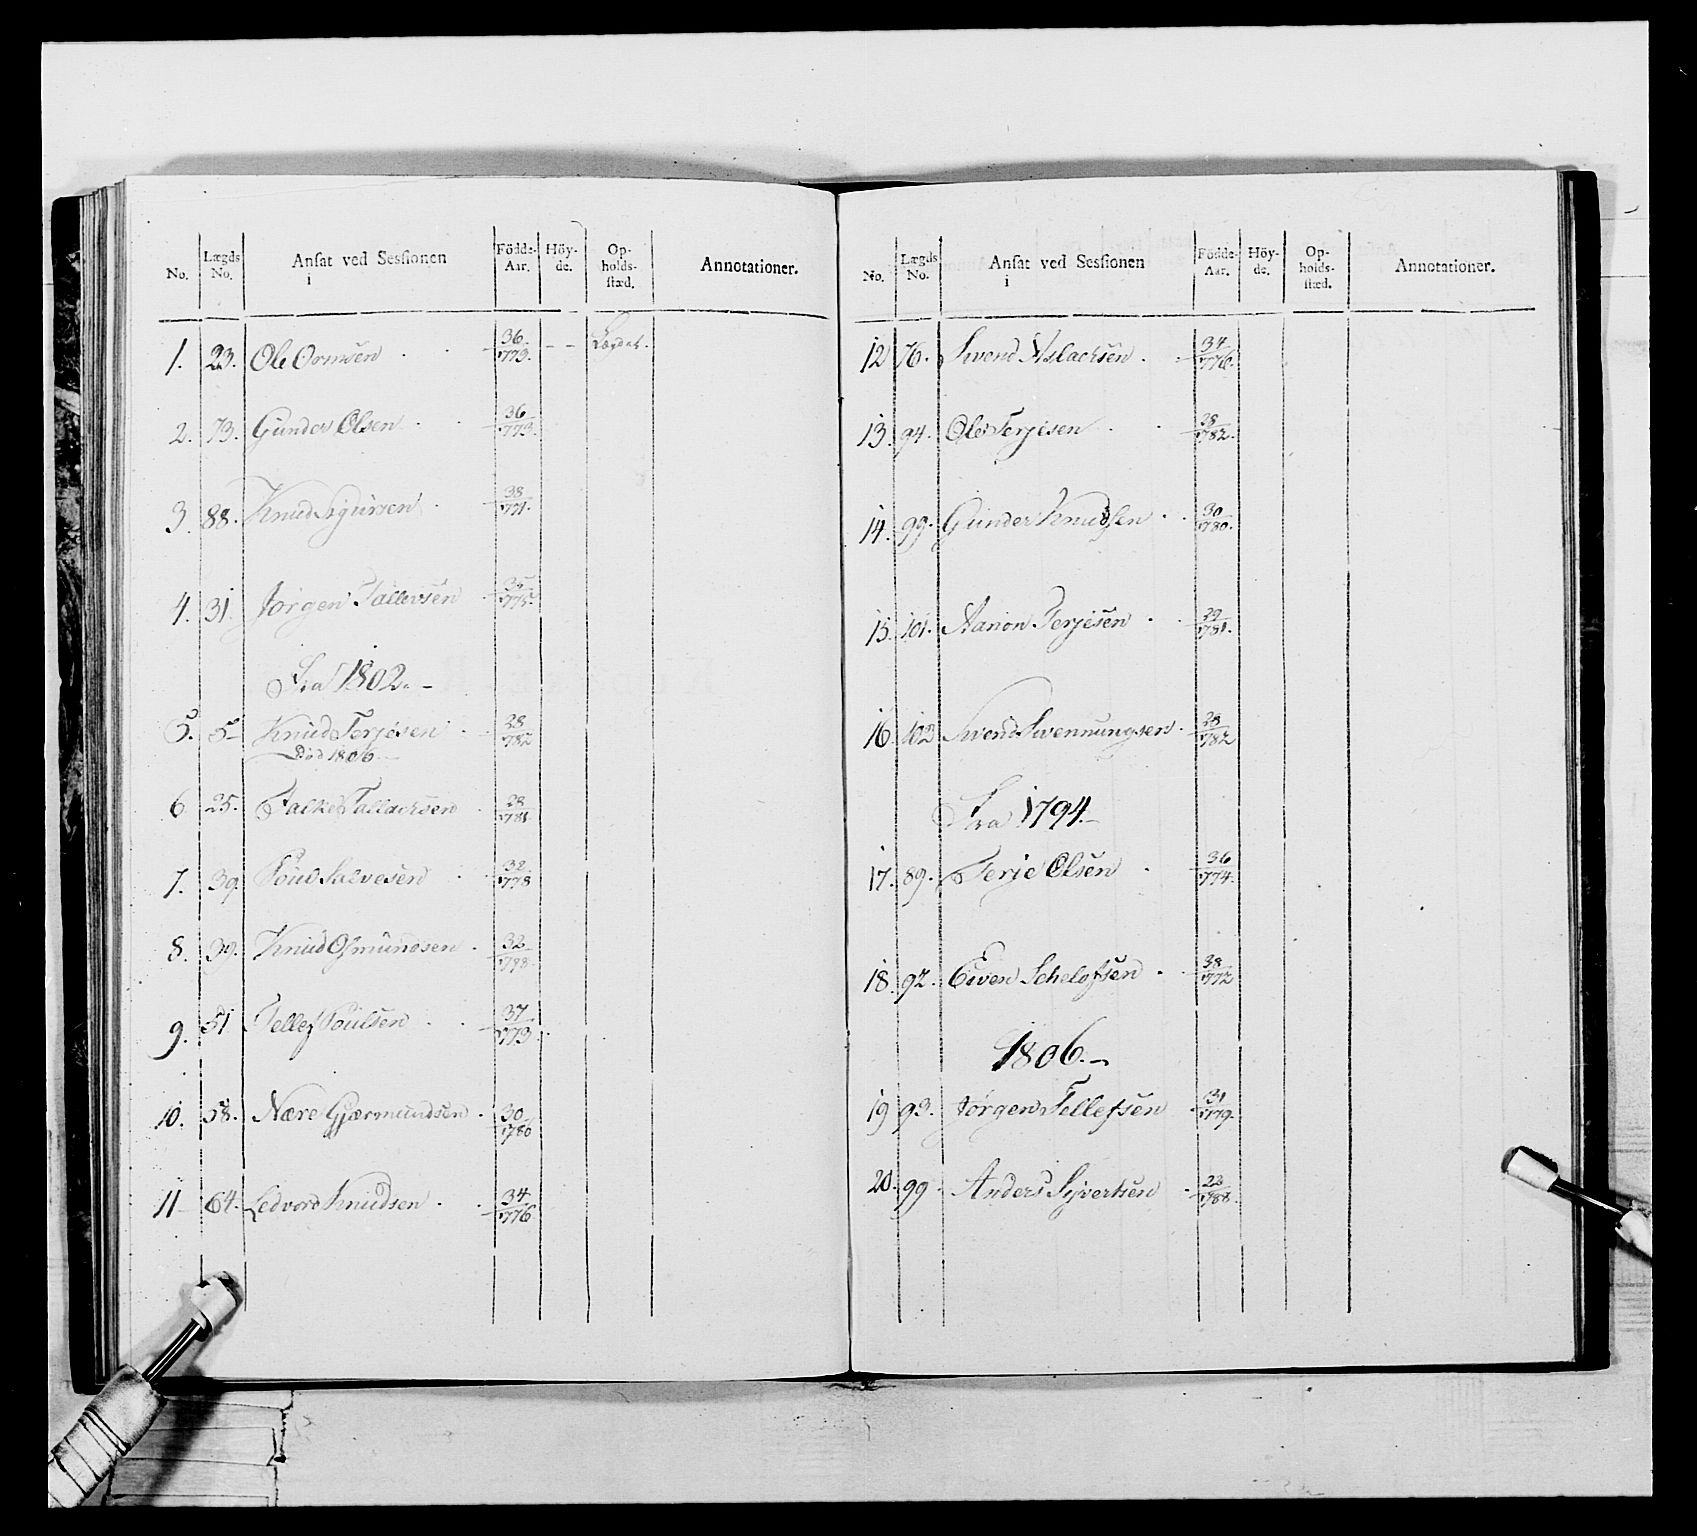 No. Lægds No. Ansat ved Sessionen i Födde-Aar. Höy-de. Op-holds-stæd. Annotationer.
1. 23. Ole Ormsen 36/1773.
2. 73. Gunder Olsen 36/1773.
3. 88. Knud Sigursen 38/1771.
4. 31. Jörgen Tallevsen 35/1775.
Fra 1802.
5. 5 Knud Terjesen 28/1782
Död 1806
6 25. Falke Tallachsen 28/1781
7. 39 Poul Salvesen 32/1778
8. 39. Knud Osmundsen 32/1778.
9. 51 Tellef Poulsen 37/1773.
10. 58. Nære Gjærmundsen 30/1780
11 64. Ledvord Knudsen 34/1776
No. Lægds No. Ansat ved Sessionen i Födde-Aar. Höy-de. Op-holds-stæd. Annotationer.
12 76. Svend Aslachsen 34/1776.
13. 94. Ole Terjesen 28/1782.
14. 99. Gunder Knudsen 30/1780.
15. 101. Aanon Terjesen 29/1781.
16 102 Svend Svennungsen 28/1782
Fra 1794.
17. 89. Terje Olsen 36/1774.
18. 92. Even Schelofsen 38/1772
1806.
19 93. Jörgen Tellefsen 31/1779.
20. 99 Anders Syvertsen 22/1788.